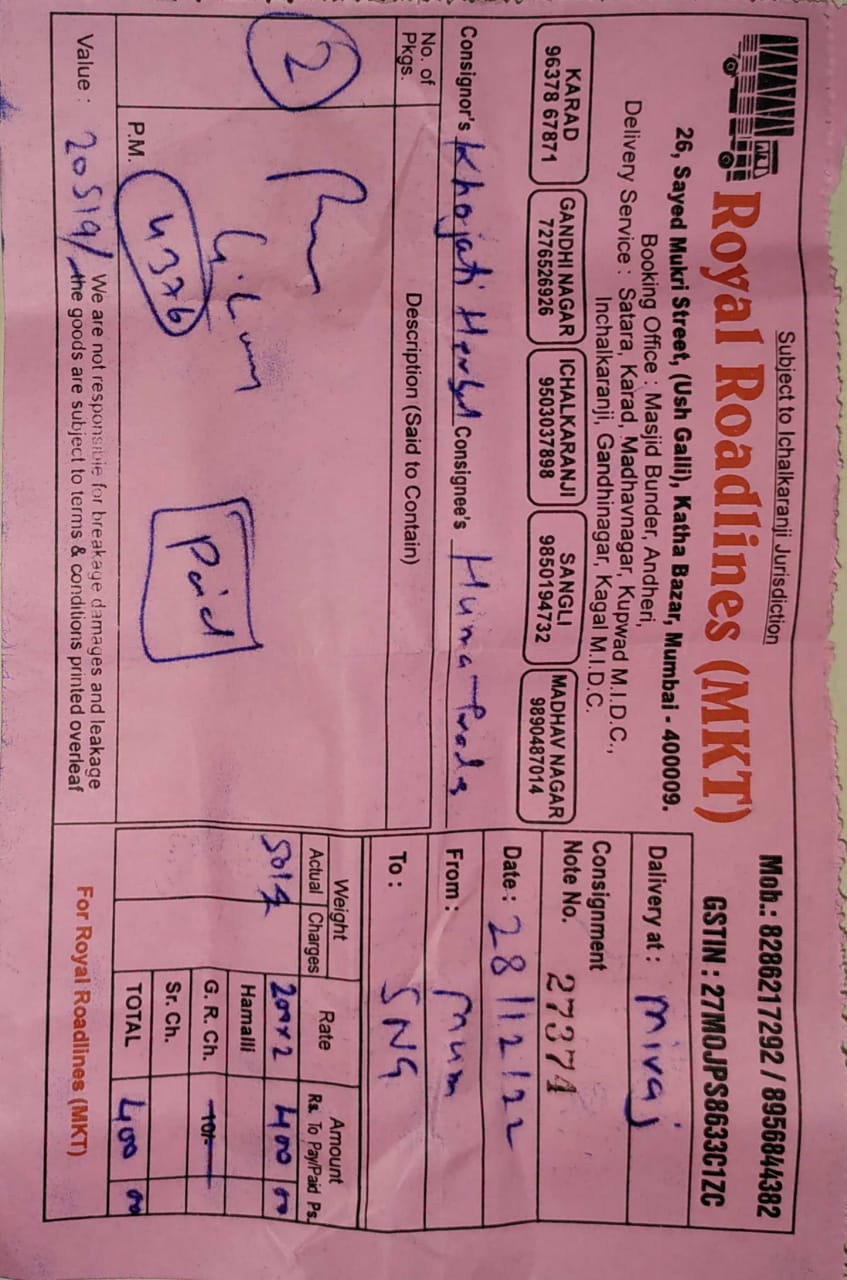 Subject to Ichalkaranji Jurisdiction
Mob.: 8286217292 / 8956844382
Royal Roadlines (MKT)
GSTIN : 27MOJPS8633C1ZC
26, Sayed Mukri Street, (Ush Galli), Katha Bazar, Mumbai - 400009.
Booking Office : Masjid Bunder, Andheri,
Delivery Service : Satara, Karad, Madhavnagar, Kupwad M.I.D.C.,
Inchalkaranji, Gandhinagar, Kagal M.I.D.C.
KARAD
96378 67871
GANDHI NAGAR
7276526926
ICHALKARANJI
9503037898
SANGLI
9850194732
MADHAV NAGAR
9890487014
Dalivery at : Miraj
Consignment
Note No. 27374
Date : 28/12/22
From : Mum
To : SNG
Consignor's Khojati Herbal Consignee's Huma
No. of
Pkgs.
Description (Said to Contain)
Weight
Actual Charges
Rate
Amount
Rs. To Pay/Paid Ps.
2
Paid
P.M. 4376
200x2 400 00
Hamalli
G. R. Ch. 10/-
Sr. Ch.
TOTAL 400 00
Value : 20519/-
We are not responsible for breakage damages and leakage
the goods are subject to terms & conditions printed overleaf
For Royal Roadlines (MKT)